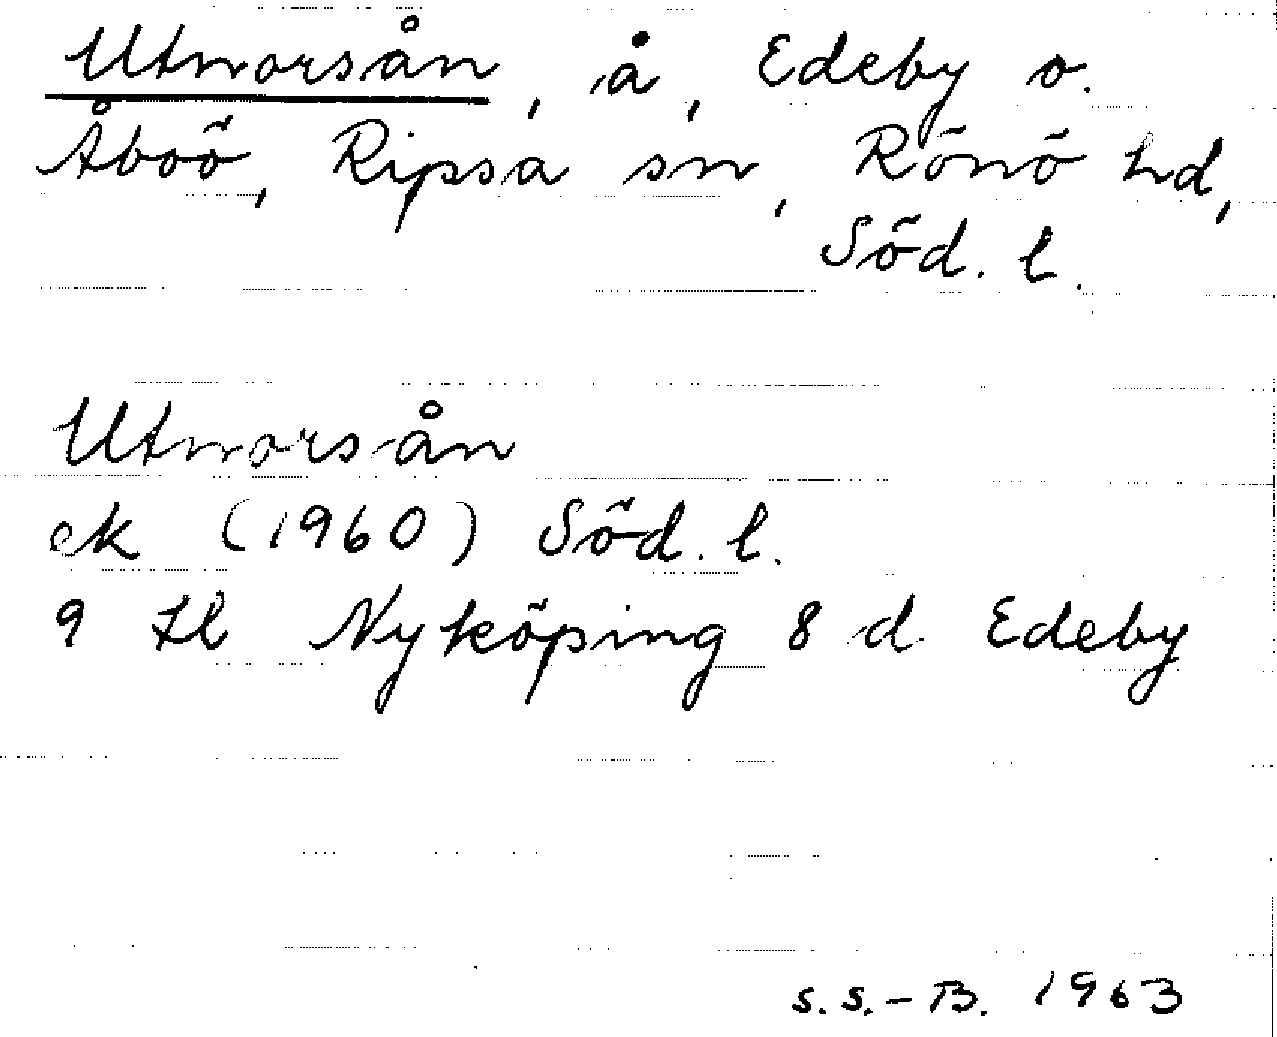 Utnorsån, å, Edeby o.
Åboö, Ripsa sn, Rönö hd,
Söd. l.
Utnorsån
ek (1960) Söd. l.
9 Il Nyköping 8 d Edeby
S.S.-B. 1963